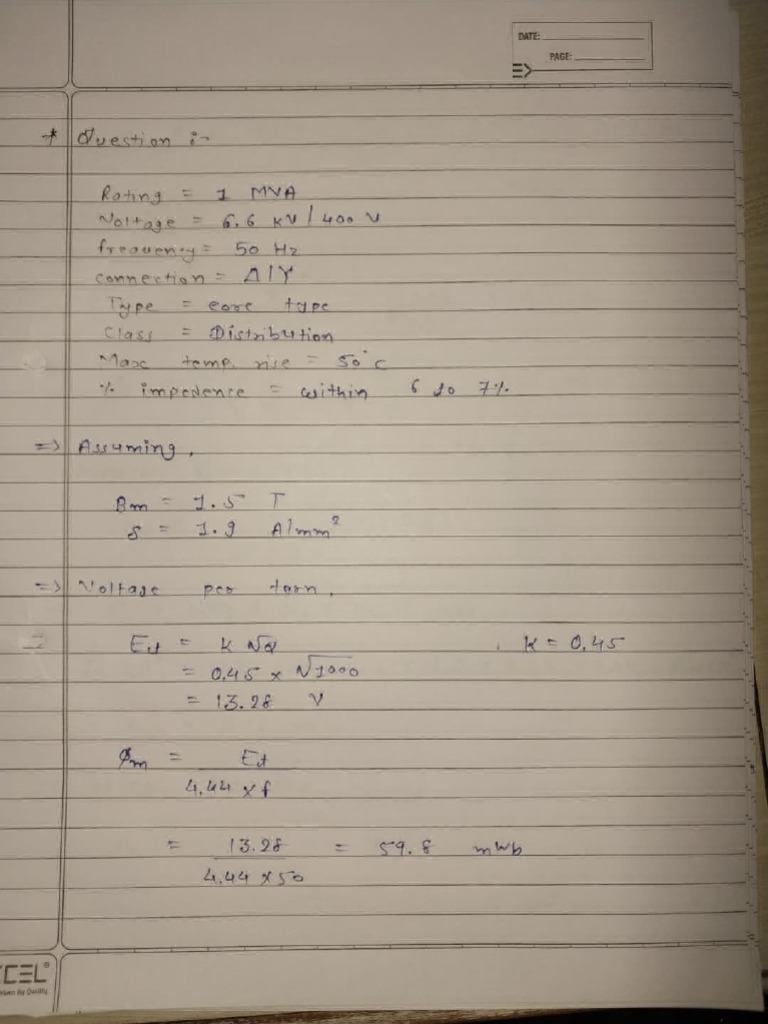 DATE:
PAGE:
* Question :-
Rating = 1 MVA
Voltage = 6.6 KV / 400 V
frequency = 50 Hz
connection = Δ/Y
Type = core type
Class = Distribution
Max temp. rise = 50°c
% impedence = within 6 to 7%
=> Assuming,
Bm = 1.5 T
δ = 1.9 A/mm²
=> Voltage per turn,
Et = K √Q , K = 0.45
= 0.45 × √1000
= 13.28 V
φm = Et
4.44 × f
= 13.28 = 59.8 mWb
4.44 × 50
CEL®